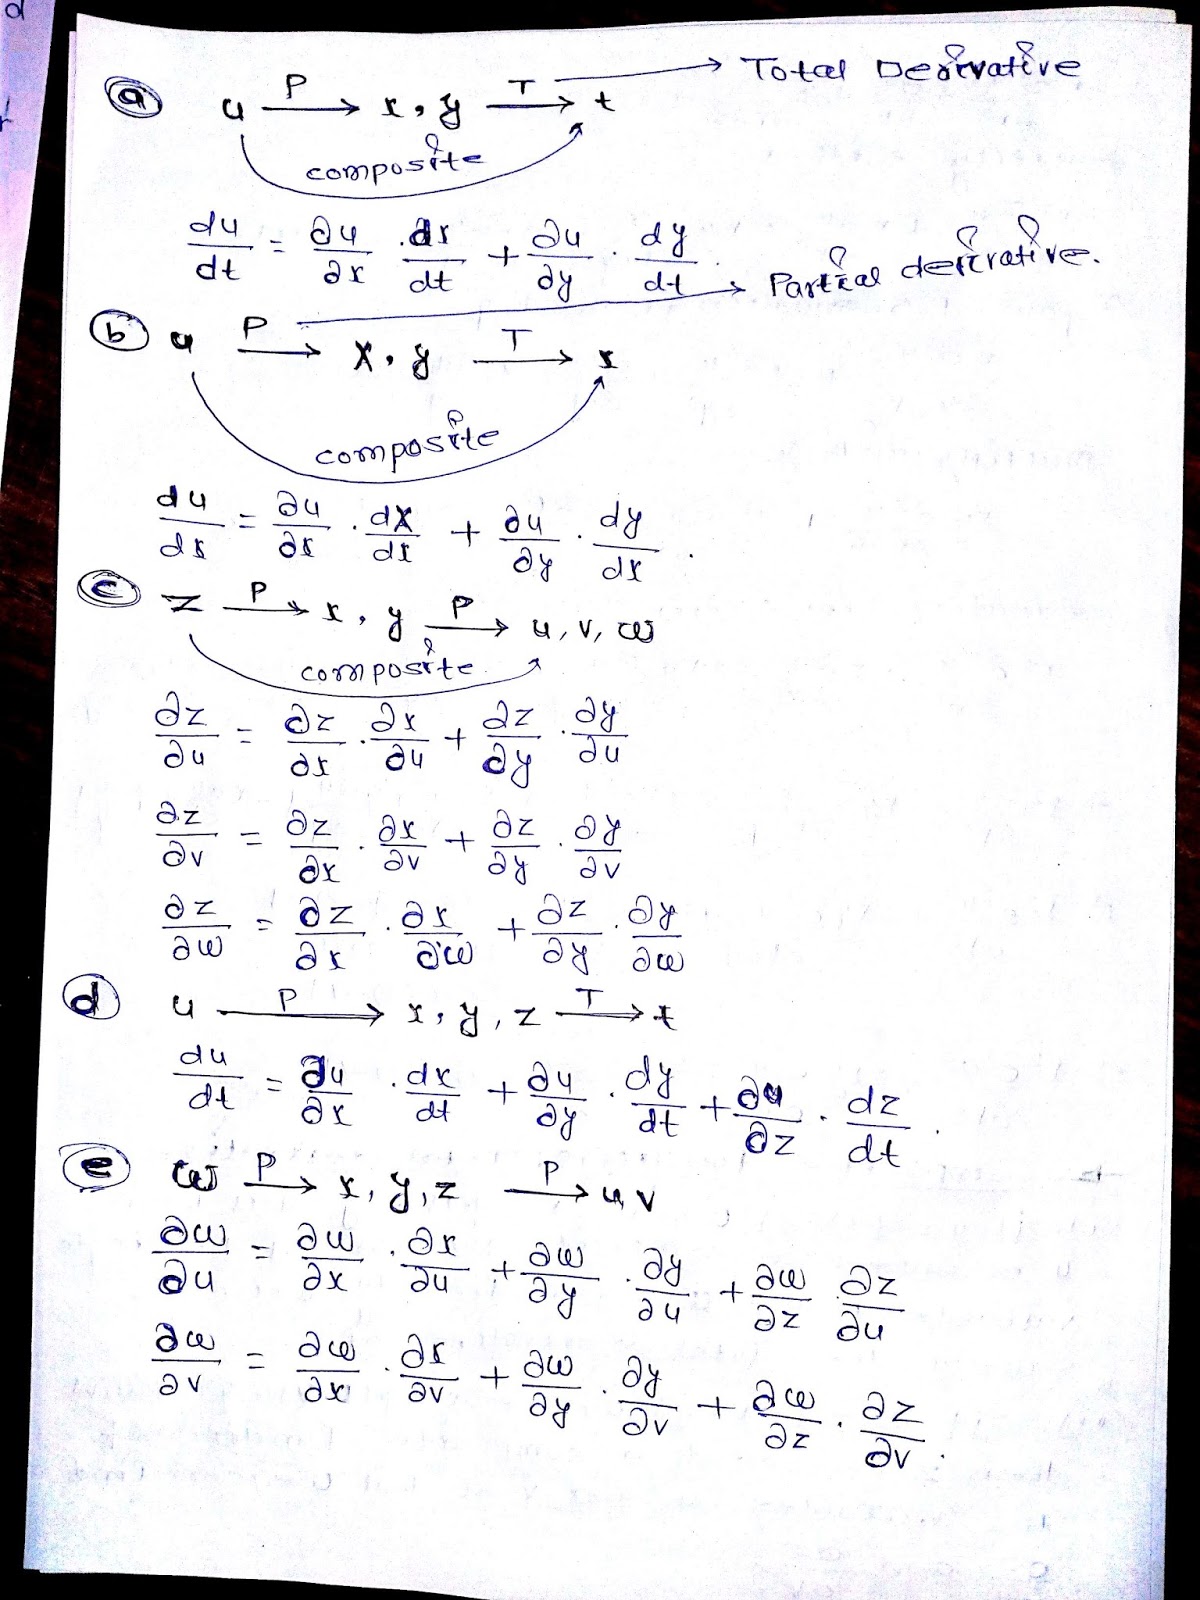 d
r
(a) u —P→ x, y —T→ t → Total Derivative
composite
du/dt = ∂u/∂x . dx/dt + ∂u/∂y . dy/dt
→ Partial derivative.
(b) u —P→ x, y —T→ x
composite
du/dx = ∂u/∂x . dx/dx + ∂u/∂y . dy/dx .
(c) z —P→ x, y —P→ u, v, w
composite
∂z/∂u = ∂z/∂x . ∂x/∂u + ∂z/∂y . ∂y/∂u
∂z/∂v = ∂z/∂x . ∂x/∂v + ∂z/∂y . ∂y/∂v
∂z/∂w = ∂z/∂x . ∂x/∂w + ∂z/∂y . ∂y/∂w
(d) u —P→ x, y, z —T→ t
du/dt = ∂u/∂x . dx/dt + ∂u/∂y . dy/dt + ∂u/∂z . dz/dt .
(e) w —P→ x, y, z —P→ u, v
∂w/∂u = ∂w/∂x . ∂x/∂u + ∂w/∂y . ∂y/∂u + ∂w/∂z . ∂z/∂u
∂w/∂v = ∂w/∂x . ∂x/∂v + ∂w/∂y . ∂y/∂v + ∂w/∂z . ∂z/∂v .